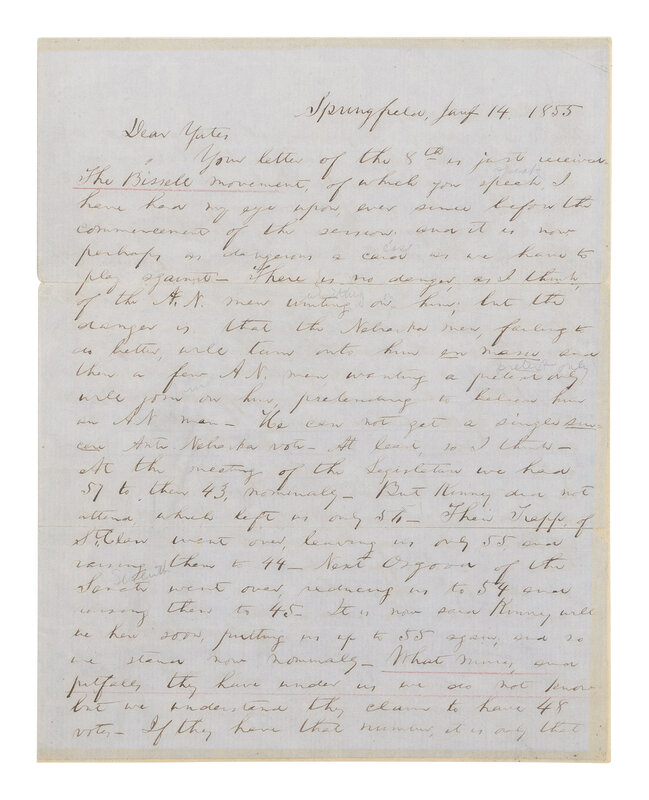 Springfield, Jany 14, 1855
Dear Yates
Your letter of the 8th is just received
The Bissell movement, of which you speak, I
have had my eye upon, ever since before the
commencement of the session; and it is now
perhaps as dangerous a card as we have to
play against— There is no danger, as I think,
of the A.N. men uniting on him; but the
danger is that the Nebraska men, failing to
do better, will turn onto him en masse and
then a few A.N. men, wanting a pretext only
will join on him, pretending to believe him
an A.N. man— He can not get a single sin-
cere Anti Nebraska vote— At least, so I think—
At the meeting of the Legislature we had
57 to their 43, nominally— But Kinney did not
attend, which left us only 56— Then Trapp, of
St. Clair went over, leaving us only 55 and
raising them to 44— Next Osgood of the
Senate went over, reducing us to 54 and
raising them to 45— It is now said Kinney will
be here soon, putting us up to 55 again, and so
we stand now nominally— What mines, and
pitfalls they have under us we do not know
but we understand they claim to have 48
votes— If they have that number, it is only that